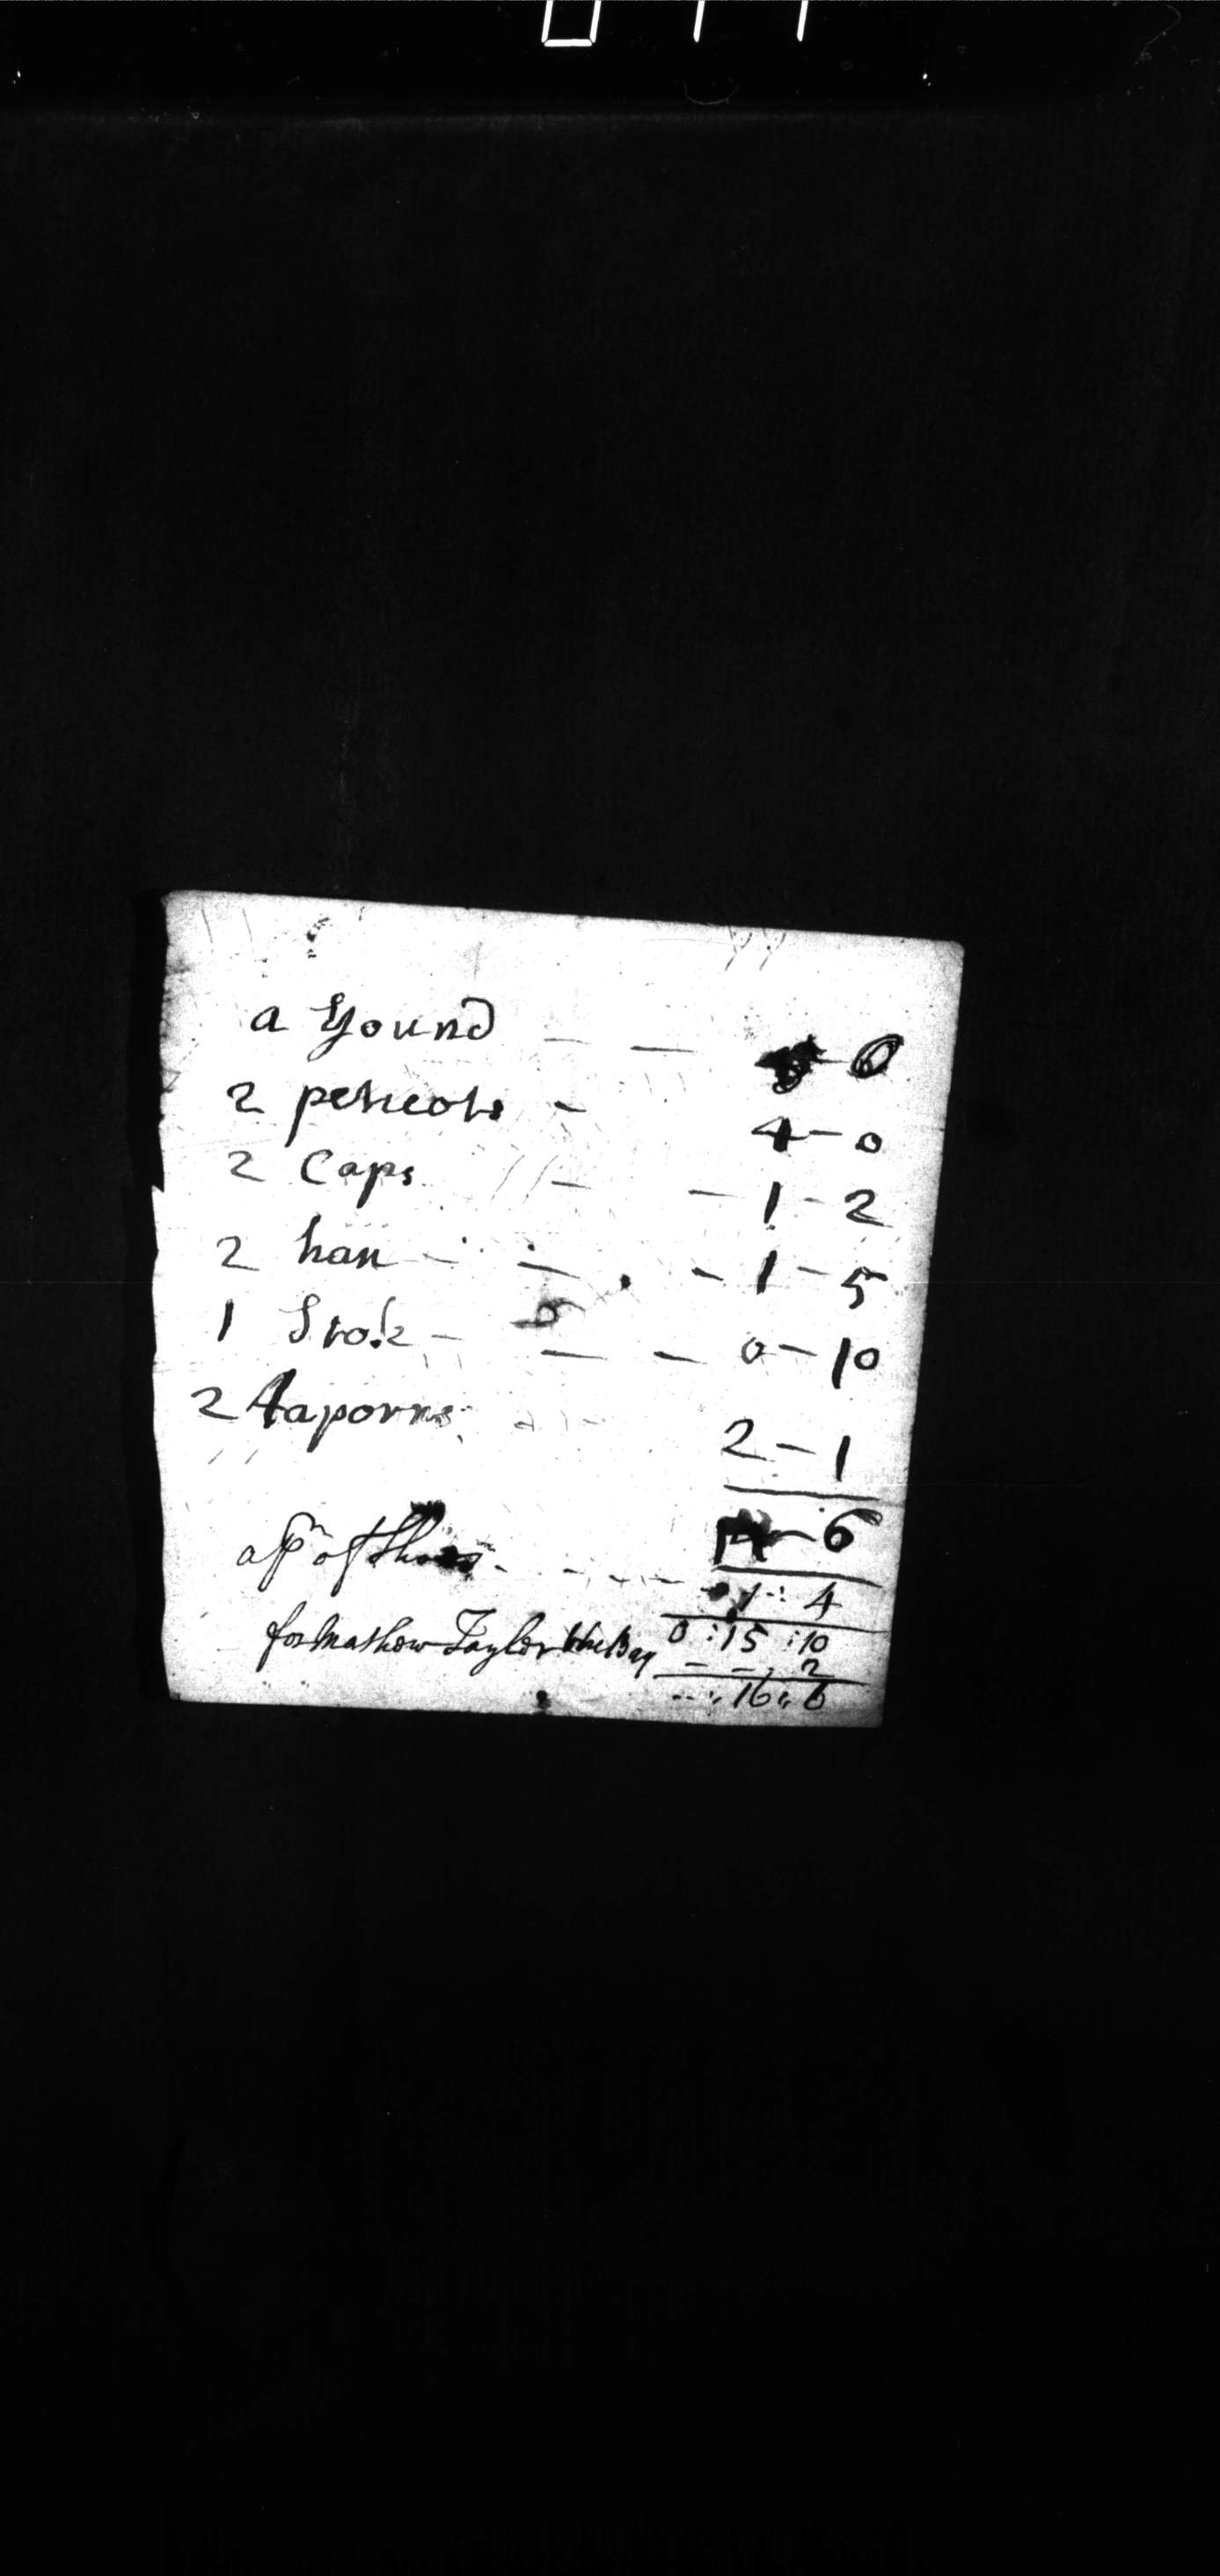 a gound - - 5-0
2 peticots - 4-0
2 Caps - - 1-2
2 han - - - 1-5
1 Stok - - - 0-10
2 Aaporns 2-1
14-6
a pr of Shoes - - - - 1 : 4
for Mathew Taylor 0 : 15 : 10
- - 2
- - : 16 : 6